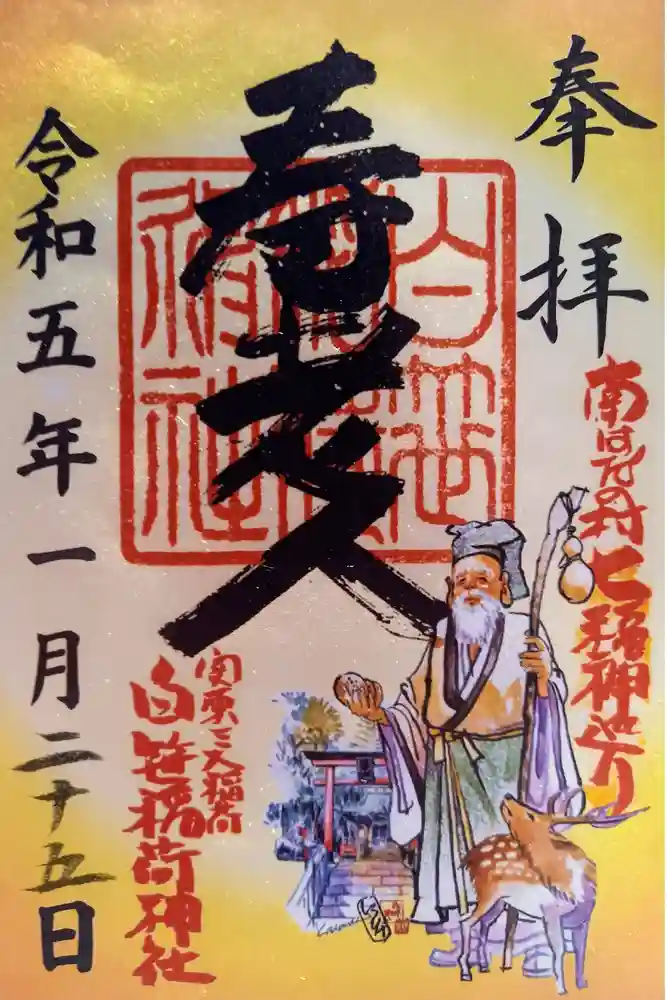 奉拝
南はだの村七福神巡り
寿老人
白笹
稲荷
神社
関東三大稲荷
白笹稲荷神社
令和五年一月二十五日